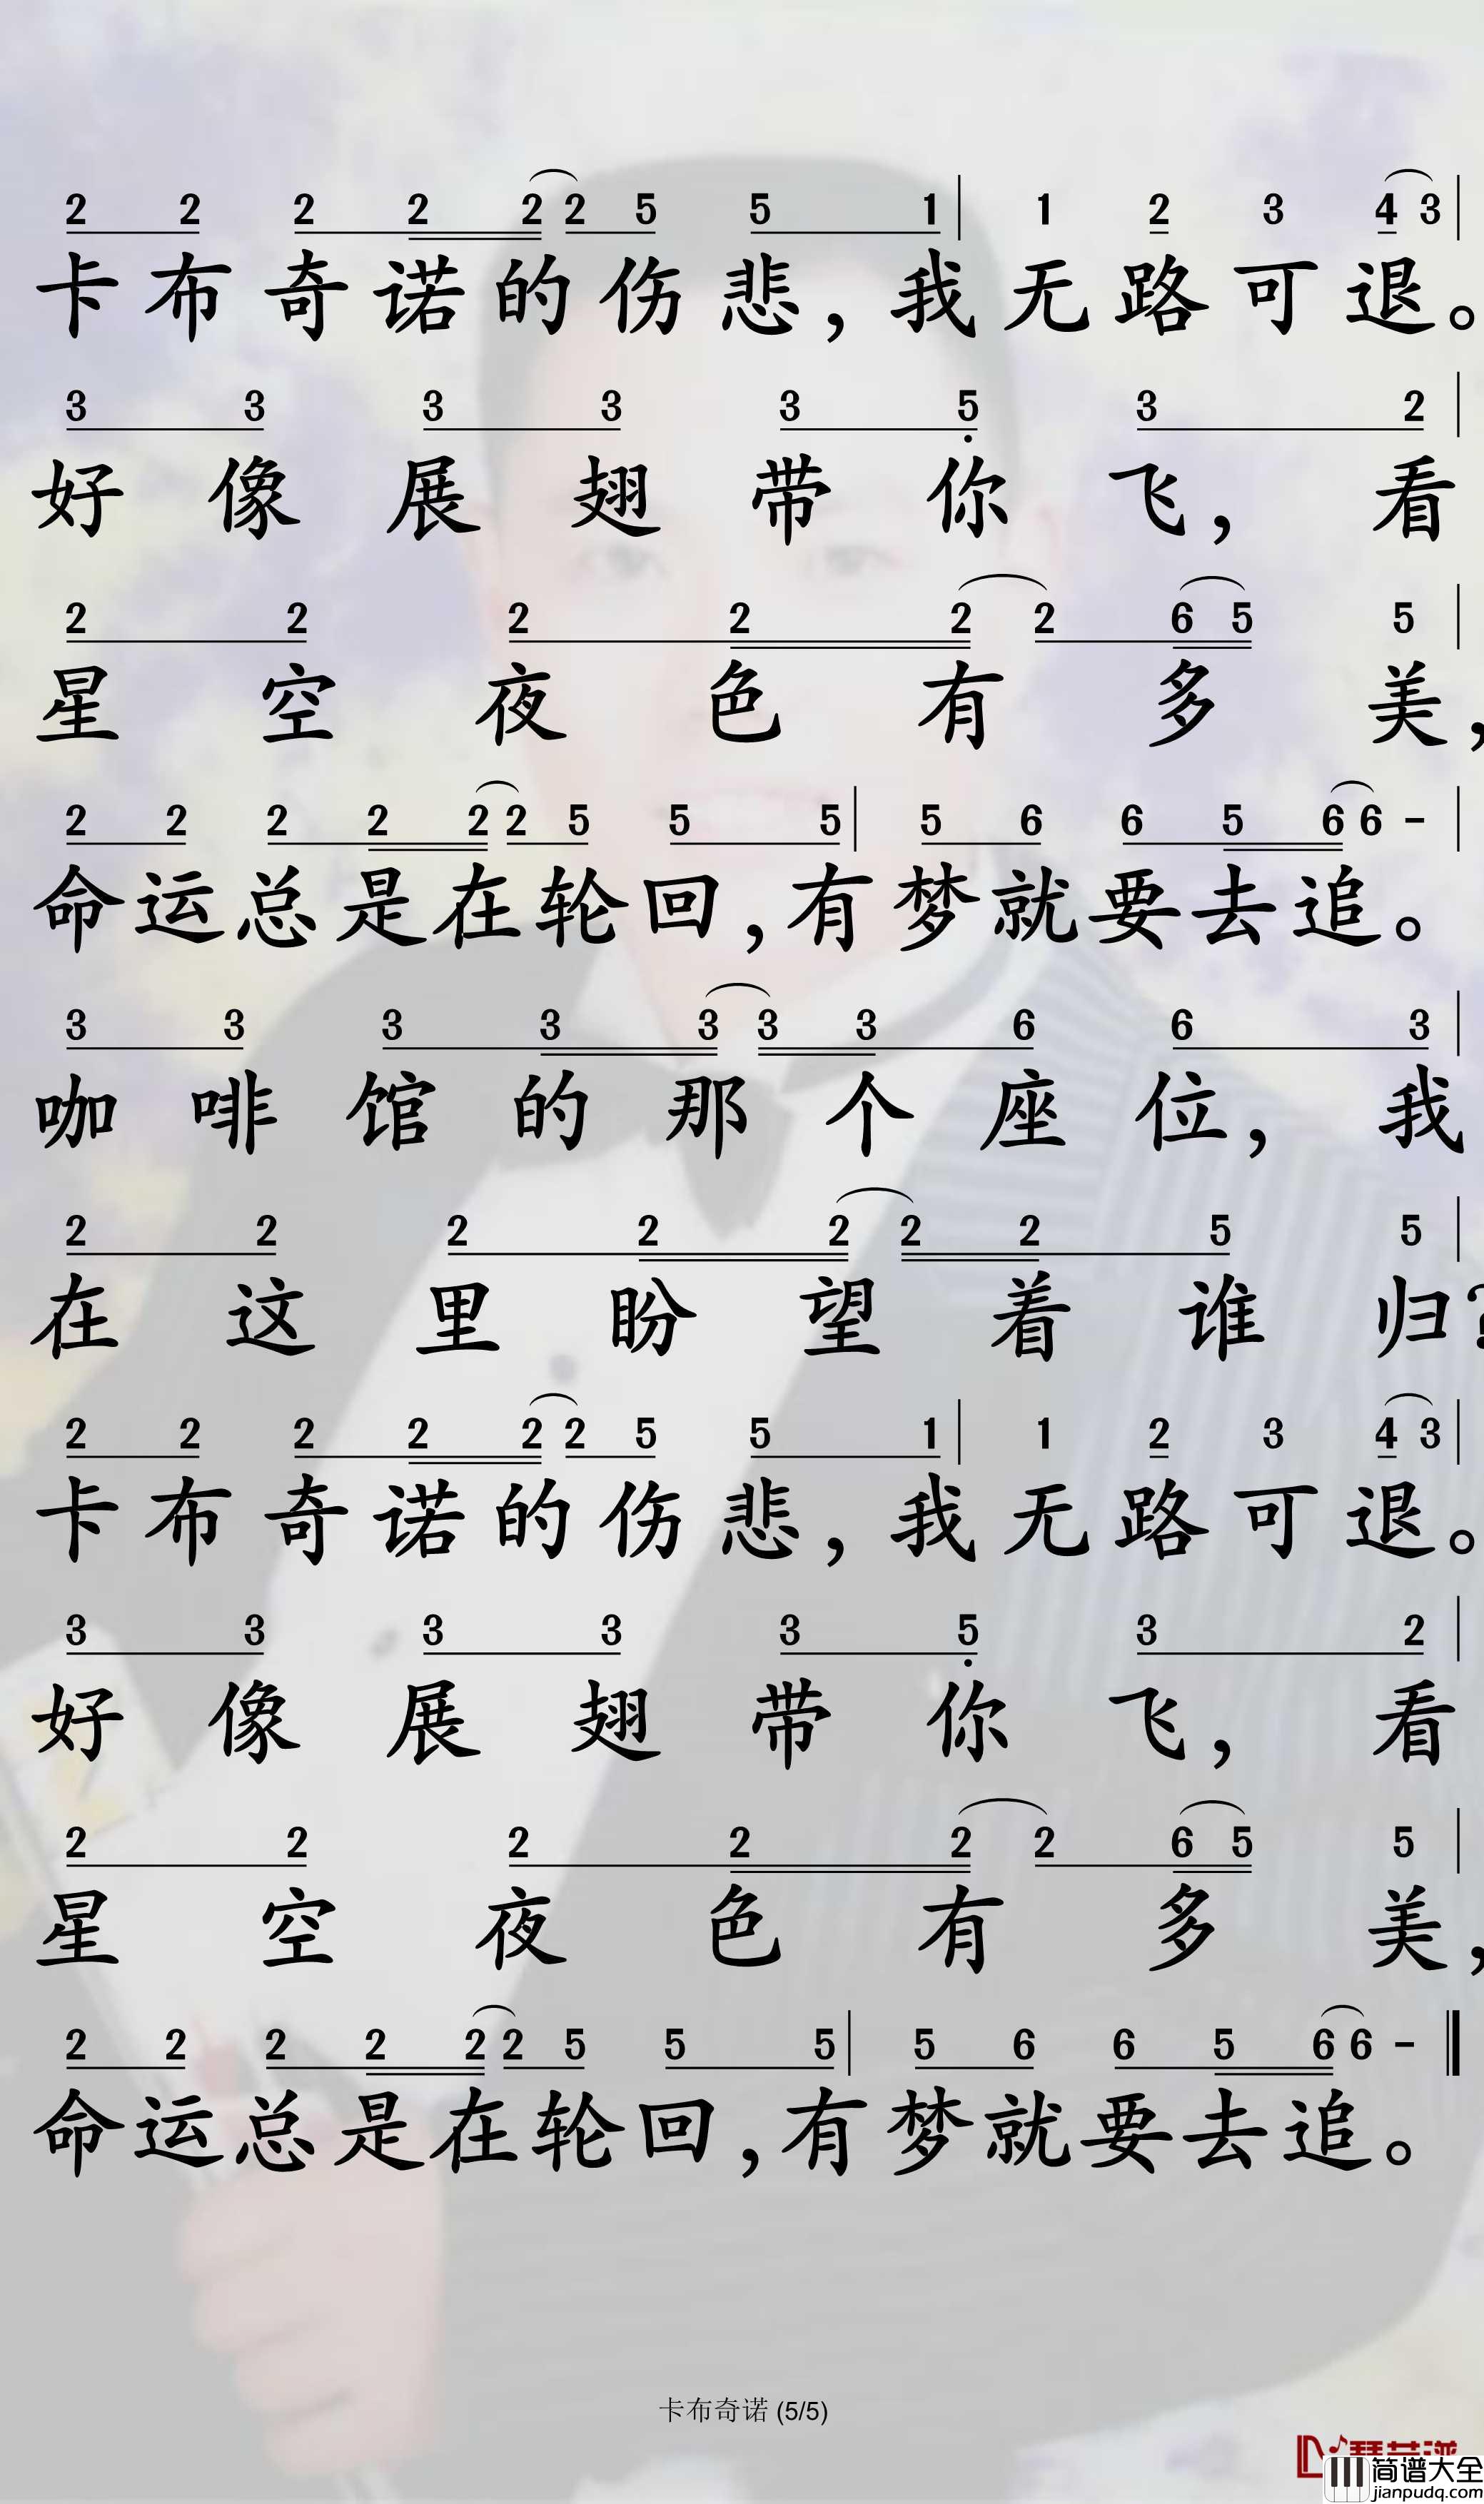 2 2 2 2 2 2 5 5 1 | 1 2 3 4 3 |
卡布奇诺的伤悲，我无路可退。
3 3 3 3 3 5 3 2 |
好像展翅带你飞，看
2 2 2 2 2 2 6 5 5 |
星空夜色有多美，
2 2 2 2 2 2 5 5 5 | 5 6 6 5 6 6 - |
命运总是在轮回，有梦就要去追。
3 3 3 3 3 3 3 6 6 3 |
咖啡馆的那个座位，我
2 2 2 2 2 2 2 5 5 |
在这里盼望着谁归？
2 2 2 2 2 2 5 5 1 | 1 2 3 4 3 |
卡布奇诺的伤悲，我无路可退。
3 3 3 3 3 5 3 2 |
好像展翅带你飞，看
2 2 2 2 2 2 6 5 5 |
星空夜色有多美，
2 2 2 2 2 2 5 5 5 | 5 6 6 5 6 6 - ‖
命运总是在轮回，有梦就要去追。
卡布奇诺 (5/5)
简谱大全
jianpudq.com